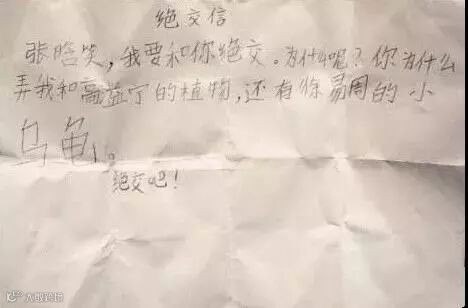 绝交信
张晗笑，我要和你绝交。为什么呢？你为什么
弄我和高益宁的植物，还有徐易周的小
乌龟。
绝交吧！
大数跨境